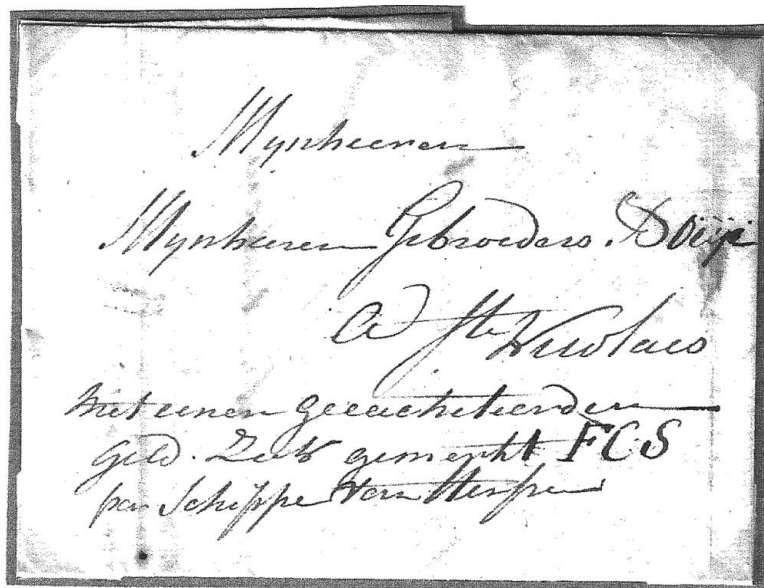 Mynheeren
Mynheeren Gebroeders
a Ste Nicolaes
Met eenen gecacheteerden
Geld. Zak gemerkt FCS
per Schipper van